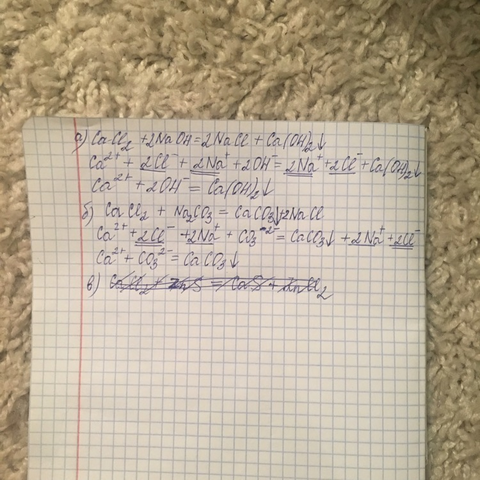 а) CaCl₂ + 2NaOH = 2NaCl + Ca(OH)₂↓
Ca²⁺ + 2Cl⁻ + 2Na⁺ + 2OH⁻ = 2Na⁺ + 2Cl⁻ + Ca(OH)₂↓
Ca²⁺ + 2OH⁻ = Ca(OH)₂↓
б) CaCl₂ + Na₂CO₃ = CaCO₃↓ + 2NaCl
Ca²⁺ + 2Cl⁻ + 2Na⁺ + CO₃²⁻ = CaCO₃↓ + 2Na⁺ + 2Cl⁻
Ca²⁺ + CO₃²⁻ = CaCO₃↓
в) CaCl₂ + ZnS = CaS + ZnCl₂